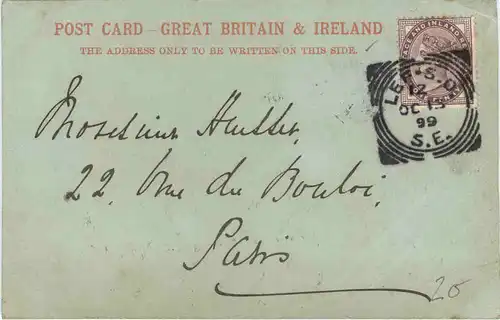 POST CARD - GREAT BRITAIN & IRELAND
THE ADDRESS ONLY TO BE WRITTEN ON THIS SIDE.
LEE S.O.
OC 13
99
S.E.
22, Rue du Bouloi,
Paris
20